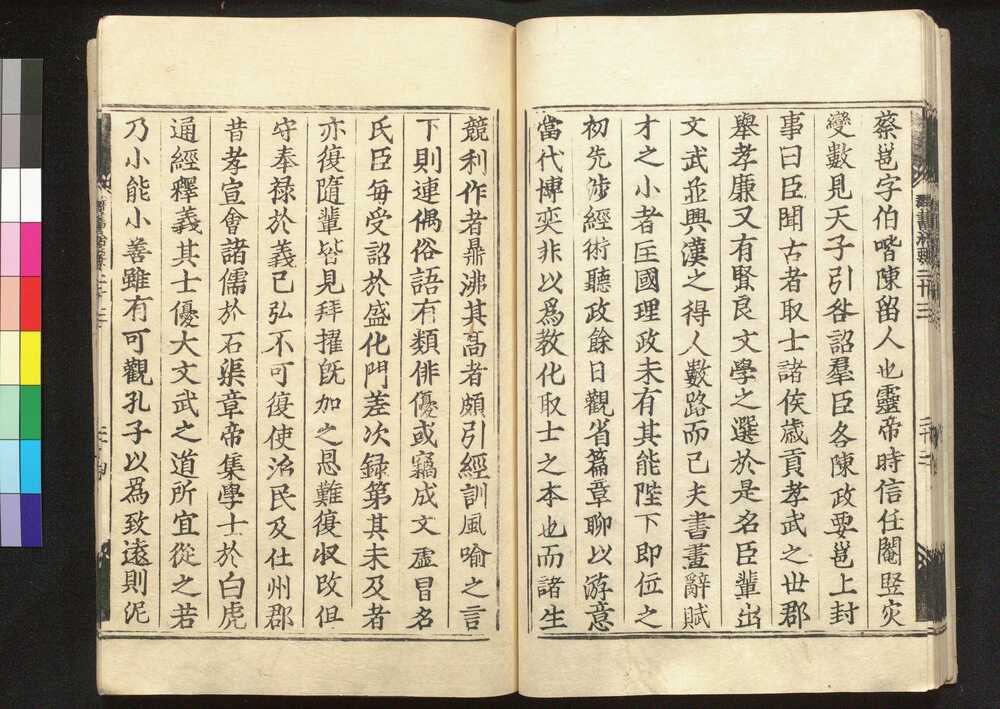 蔡邕字伯喈陳留人也靈帝時信任閹竪灾
變數見天子引咎詔羣臣各陳政要邕上封
事曰臣聞古者取士諸侯歲貢孝武之世郡
舉孝廉又有賢良文學之選於是名臣輩出
文武並興漢之得人數路而已夫書畫辭賦
才之小者匡國理政未有其能陛下即位之
初先涉經術聽政餘日觀省篇章聊以游意
當代博奕非以爲教化取士之本也而諸生
競利作者鼎沸其髙者頗引經訓風喻之言
下則連偶俗語有類俳優或竊成文虛冒名
氏臣每受詔於盛化門差次録第其未及者
亦復隨輩皆見拜擢旣加之恩難復収改但
守奉禄於義已弘不可復使治民及仕州郡
昔孝宣會諸儒於石渠章帝集學士於白虎
通經釋義其士優大文武之道所宜從之若
乃小能小善雖有可觀孔子以爲致遠則泥